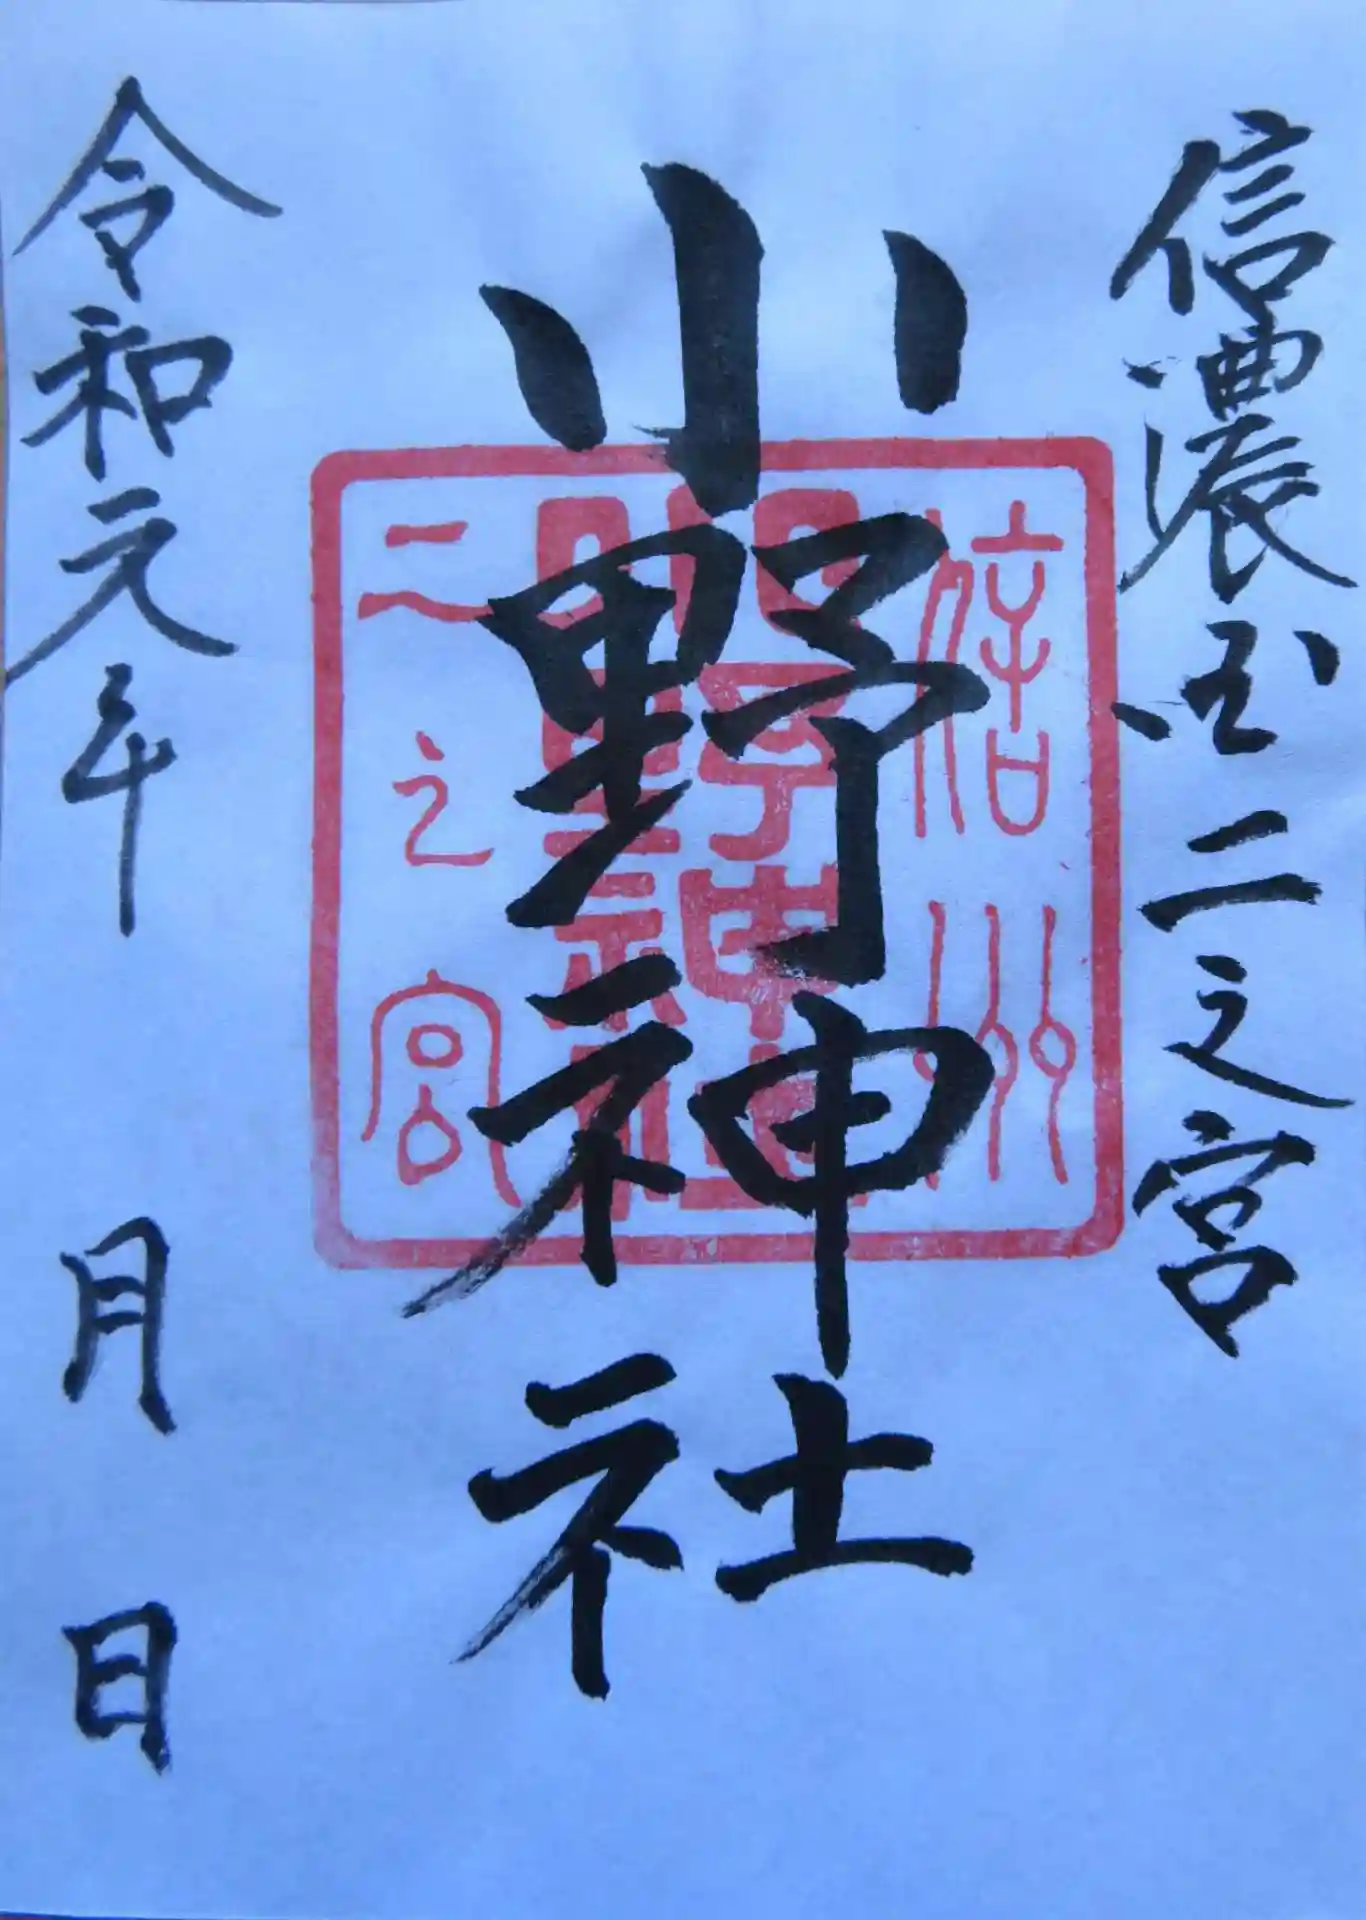 信濃国二之宮
小野神社
信州
小野神社
二之宮
令和元年 月 日